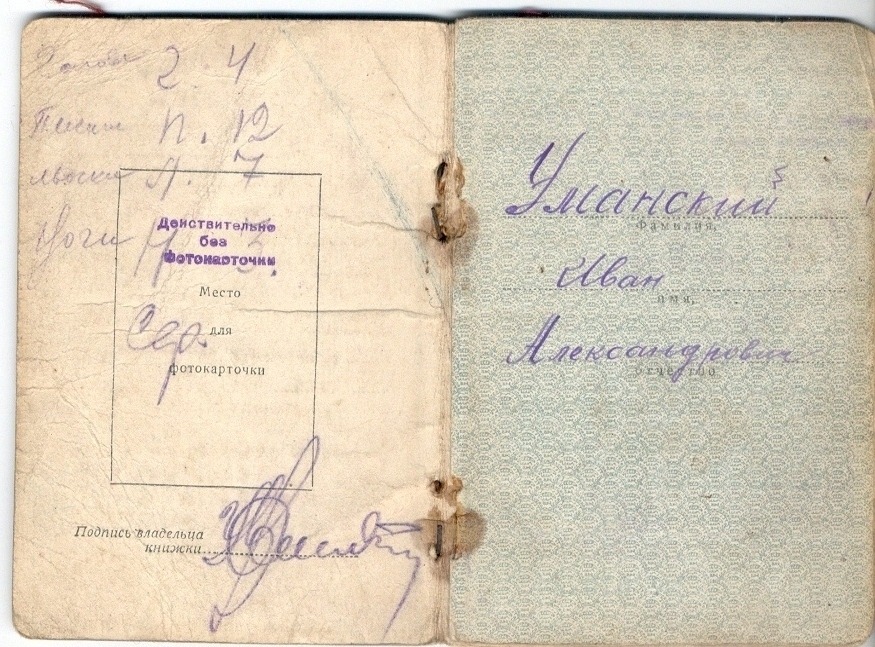 2. 4
п. 12
Л. 7
Ноги
Действительно
без
фотокарточки
Место
для
фотокарточки
Подпись владельца
книжки
Уманский
Фамилия,
Иван
имя,
Александрович
отчество